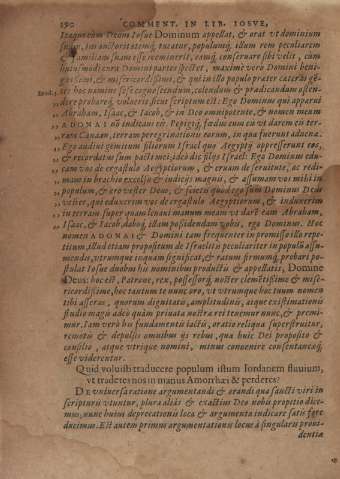 190 COMMENT. IN LIB. IOSVE,
Itaque cum Deum Iosue Dominum appellat, & orat vt dominium
suum, ius auctoritatemq́; tueatur, populumq́; illum rem peculiarem
& familiam suam esse meminerit, eamq́; conseruare sibi velit, cum
huiusmodi cura Domini partes spectet, maximè vero Domini beni-
gnissimi, & misericordissimi, & qui in illo populo præter cæteras gẽ-
tes hoc nomine sese cognoscendum, colendum & prædicandum osten-
dere probareq́; voluerit sicut scriptum est: Ego Dominus qui apparui
Abraham, Isaac, & Iacob, & in Deo omnipotente, & nomen meum
ADONAI nõ indicaui eis: Pepigiq́; fœdus cum eis vt darem eis ter-
ram Canaan, terram peregrinationis eorum, in qua fuerunt aduenæ.
Ego audiui gemitum filiorum Israel quo Aegyptij oppresserunt eos,
& recordatus sum pacti mei: ideo dic filijs Israel: Ego Dominus edu-
cam vos de ergastulo Aegyptiorum, & eruam de seruitute, ac redi-
mam in brachio excelso & iudicijs magnis, & assumam vos mihi in
populum, & ero vester Deus, & scietis quod ego sum Dominus Deus
vester, qui eduxerim vos de ergastulo Aegyptiorum, & induxerim
in terram super quam leuaui manum meam vt darẽ eam Abraham,
Isaac, & Iacob, daboq́; illam possidendam vobis, ego Dominus. Hoc
nomen ADONAI & Domini tam frequenter in promisso illo repe-
titum, illud etiam propositum de Israelitis peculiariter in populũ assu-
mendis, vtrumque inquam significat, & ratum firmumq́; probari po-
stulat Iosue duobus his nominibus productis & appellatis, Domine
Deus: hoc est, Patrone, rex, possessorq́; noster clementissime & mise-
ricordissime, hoc tantum te nunc oro, vt vtrumque hoc tuum nomen
tibi asseras, quorum dignitatis, amplitudinis, atque existimationis
studio magis adeò quàm priuata nostra rei tenemur nunc, & premi-
mur. Iam verò his fundamentis iactis, oratio reliqua superstruitur,
remotis & depulsis omnibus ijs rebus, quæ huic Dei proposito &
consilio, atque vtrique nomini, minus conuenire consentaneaq́;
esse viderentur.
Quid voluisti traducere populum istum Iordanem fluuium,
vt traderes nos in manus Amorrhæi & perderes?
DE vniuersa ratione argumentandi & orandi qua sancti viri in
scripturis vtuntur, plura aliàs & exactius Deo nobis propitio dice-
mus, nunc huius deprecationis loca & argumenta indicare satis fore
ducimus. Est autem primus argumentationis locus à singularis proui-
dentiæ